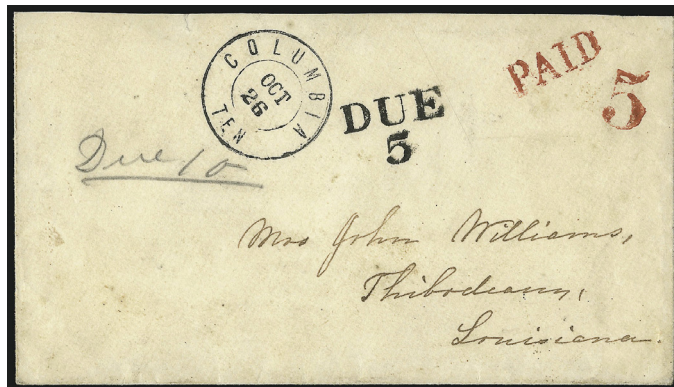 COLUMBIA
TEN
OCT
26
DUE
5
PAID
5
Due 10
Mrs John Williams,
Thibodeaux,
Louisiana.